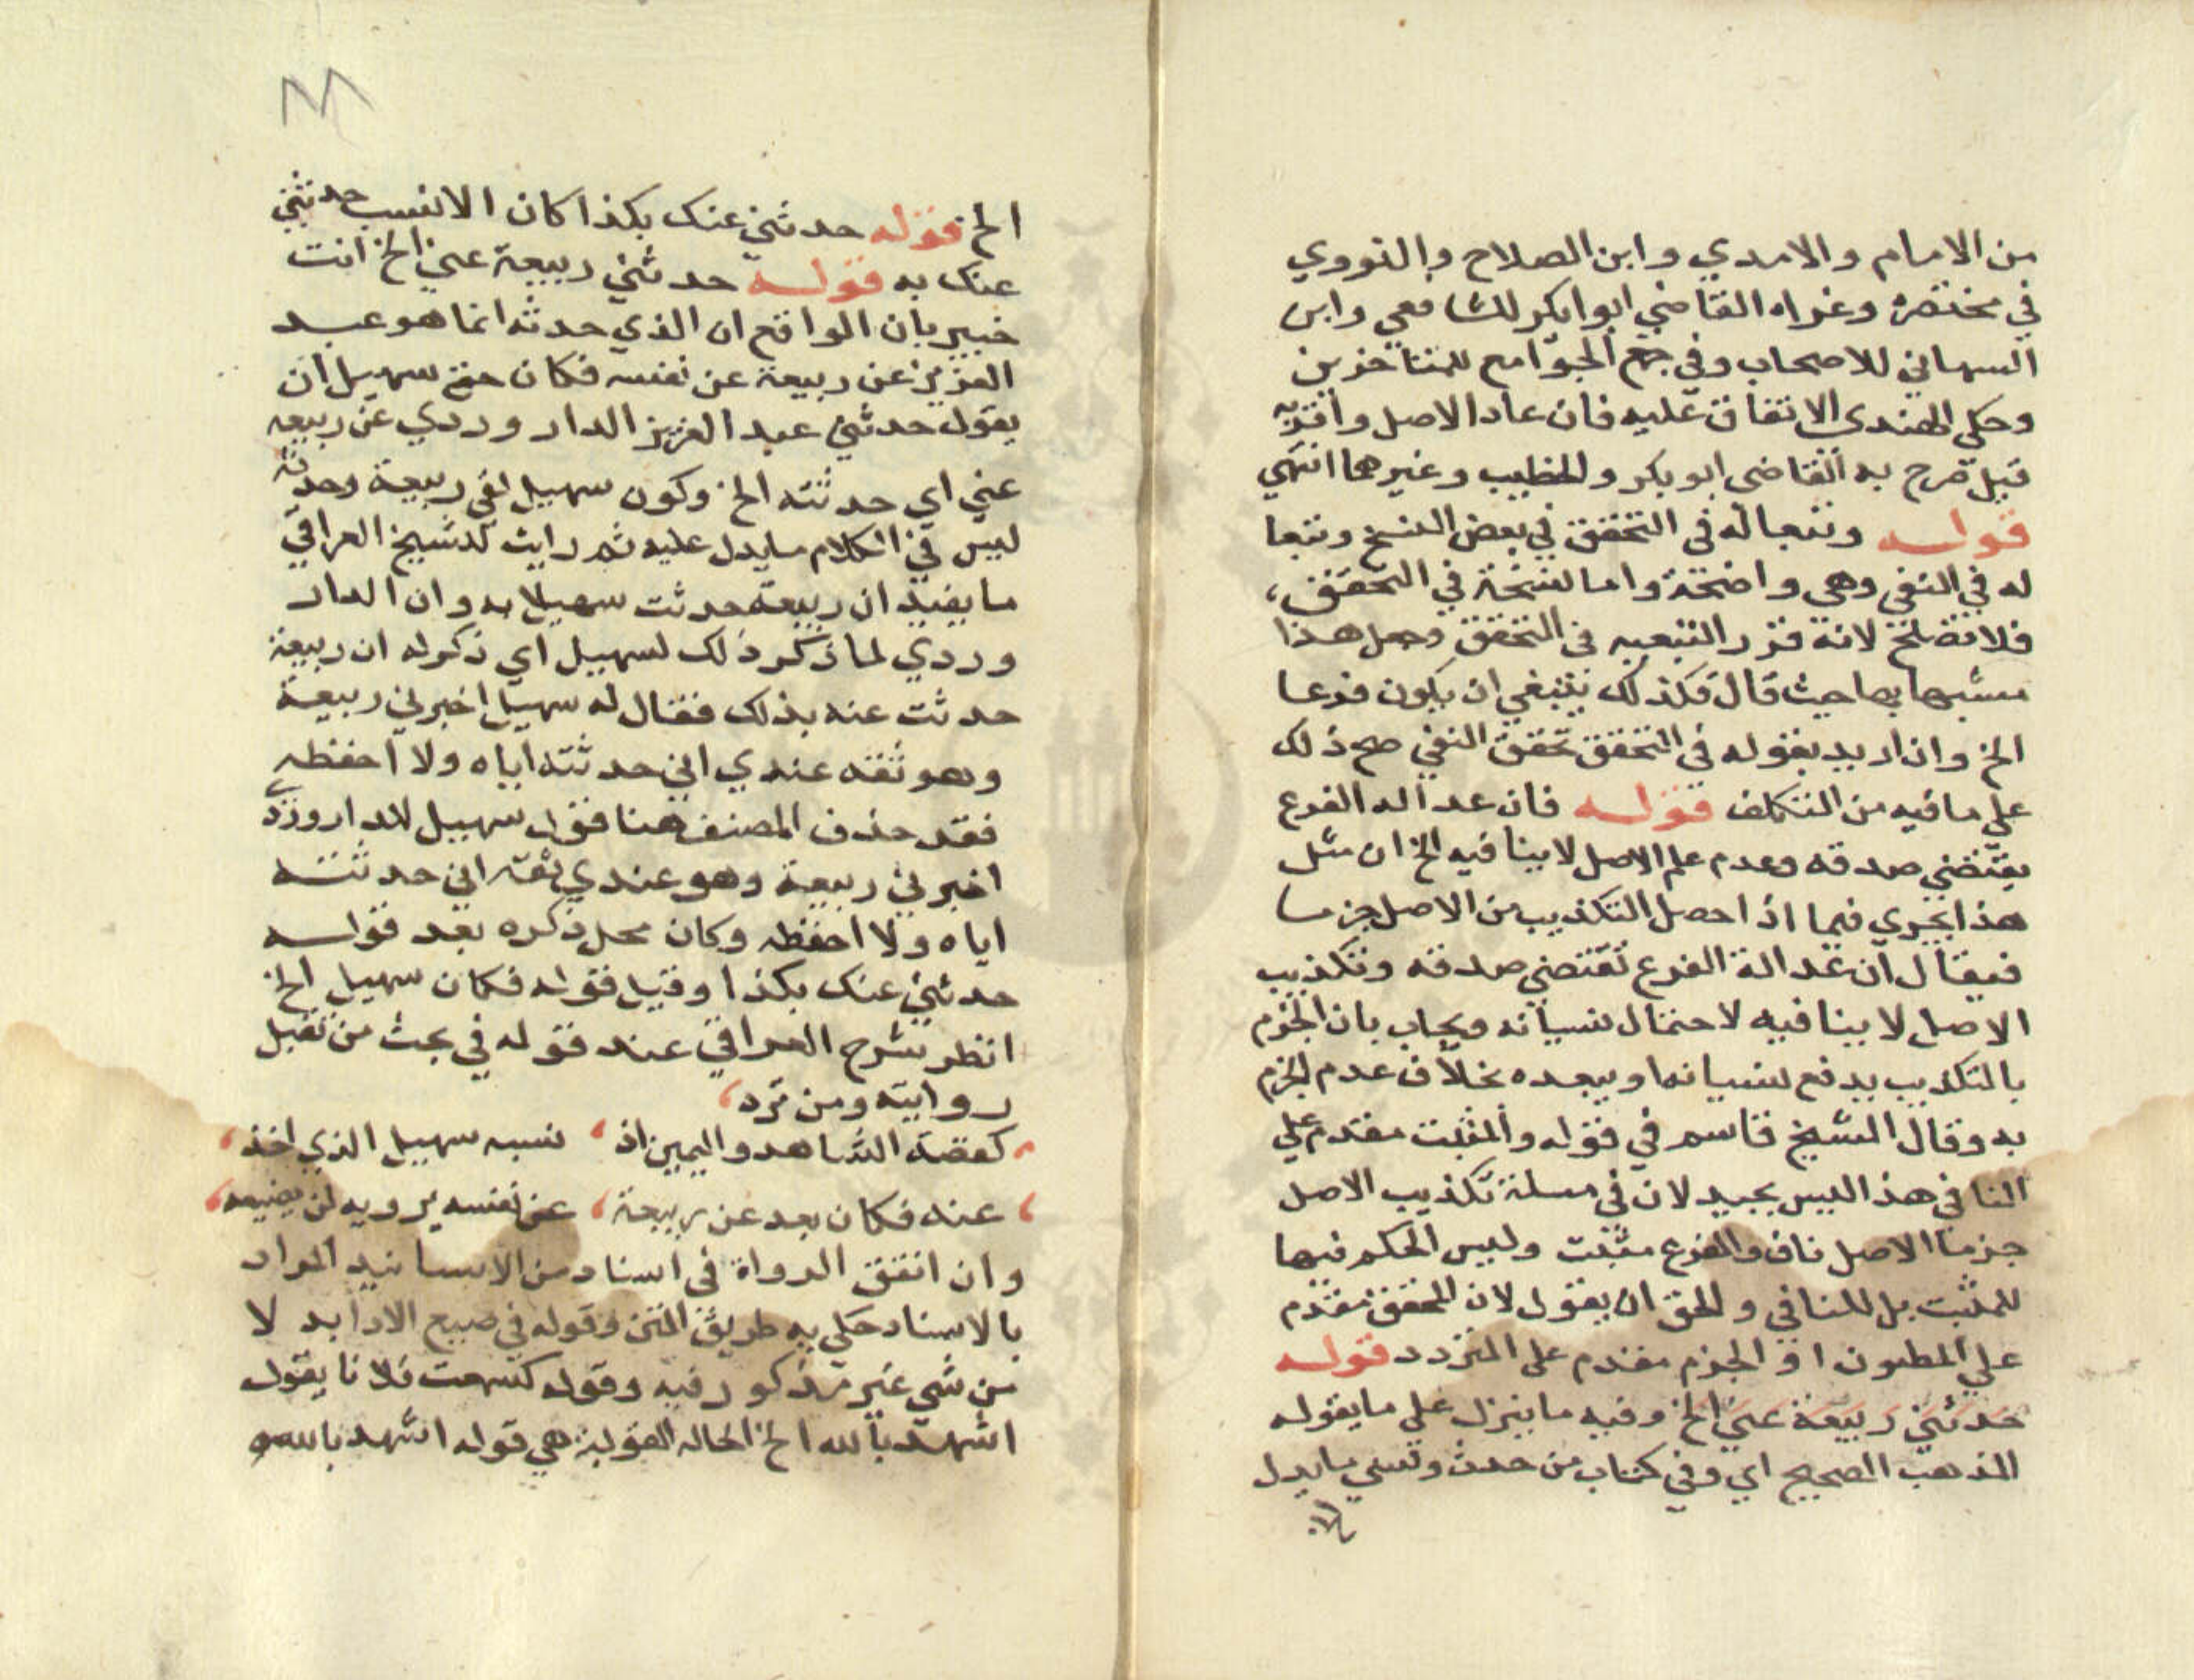 من الامام والامدي وابن الصلاح والنووي
في مختصره وعزاه القاضي ابوابكر للشافعي وابن
السمعاني للاصحاب وفي جمع الجوامع للمتاخرين
وحكى الهندى الاتفاق عليه فان عاد الاصل واقر به
قبل صرح به القاضى ابو بكر والخطيب وغيرهما انتهي
قوله وتبعا له في التحقق في بعض النسخ وتبعا
له في النفي وهي واضحة واما نسخة في التحقق،
فلا تصلح لانه قرر التبعيه في التحقق وجعل هذا
مشبها بها حيث قال فكذلك ينبغي ان يكون فرعا
الخ وان اريد بقوله في التحقق تحقق النفي صح ذلك
علي ما فيه من التكلف قوله فان عدالة الفرع
يقتضي صدقه وعدم علم الاصل لا ينافيه الخ ان مثل
هذا يجري فيما اذا حصل التكذيب من الاصل جزما
فيقال ان عدالة الفرع تقتضي صدقه وتكذيب
الاصل لا ينافيه لاحتمال نسيانه ويجاب بان الجزم
بالتكذيب يدفع نسيانها ويبعده بخلاف عدم الجزم
به وقال الشيخ قاسم في قوله والمثبت مقدم علي
النافي هذا ليس بجيد لان في مسلة تكذيب الاصل
جزما الاصل ناف والفرع مثبت وليس الحكم فيها
للمثبت بل للنافي والحق ان يقول لان المحقق مقدم
علي المظنون او الجزم مقدم على التردد قوله
حدثني ربيعة عني الخ وفيه ما ينزل علي ما يقوله
المذهب الصحيح اي وفي كتاب من حدث ونسي ما يدل
الخ قوله حدثني عنك بكذا كان الانسب حدثني
عنك به قوله حدثني ربيعة عني الخ انت
خبير بان الواقع ان الذي حدثه انما هو عبد
العزيز عن ربيعة عن نفسه فكان حق سهيل ان
يقول حدثني عبد العزيز الداروردي عن ربيعه
عني اي حدثته الخ وكون سهيل لقي ربيعة وحدثه
ليس في الكلام ما يدل عليه ثم رايت للشيخ العراقي
ما يفيد ان ربيعة حدثت سهيلا به وان الدار
وردي لما ذكر ذلك لسهيل اي ذكر له ان ربيعة
حدثت عنه بذلك فقال له سهيل اخبرني ربيعة
وهو ثقه عندي اني حدثته اياه ولا احفظه
فقد حذف المصنف هنا قول سهيل للداروردي
اخبرني ربيعة وهو عندي ثقه اني حدثته
اياه ولا احفظه وكان محل ذكره بعد قوله
حدثني عنك بكذا وقيل قوله فكان سهيل الخ
انظر شرح العراقي عند قوله في بحث من تقبل
روايته ومن ترد،
، كقصة الشاهد واليمين اذ، نسيه سهيل الذي اخذ،
، عنه فكان بعد عن ربيعة، عن نفسه يرويه لن يضيعه،
وان اتفق الرواة في اسناد من الاسانيد المراد
بالاسناد حكاية طريق المتن وقوله في صيغ الادا بد لا
من شي غير مذكور فيه وقوله كسمعت فلانا يقول
اشهد بالله الخ الحاله القولية هي قوله اشهد بالله